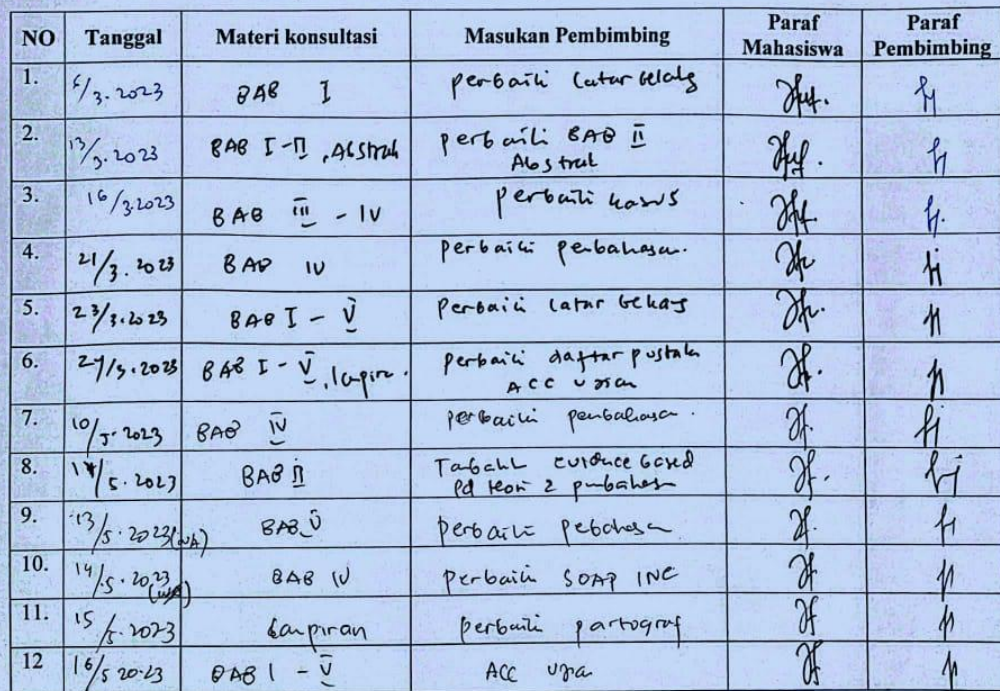 NO Tanggal Materi konsultasi Masukan Pembimbing Paraf Mahasiswa Paraf Pembimbing
1. /3.2023 BAB I perbaiki latar belakg
2. 13/3.2023 BAB I-II, Abstrak perbaiki BAB II
Abstrak
3. 16/3.2023 BAB III - IV perbaiki kasus
4. 21/3.2023 BAB IV perbaiki pembahasan.
5. 23/3.2023 BAB I - V perbaiki latar belakg
6. 27/3.2023 BAB I - V, lampira. perbaiki daftar pustaka
ACC ujian
7. 10/5.2023 BAB IV perbaiki pembahasa.
8. /5.2023 BAB II Tabahk evidence based
pd teori 2 pmbahasn
9. 13/5.2023 (WA) BAB V perbaiki pebahasa
10. 14/5.2023 (WA) BAB IV perbaiki SOAP INC
11. 15/5.2023 lampiran perbaiki partograf
12 16/5 2023 BAB I - V ACC ujia